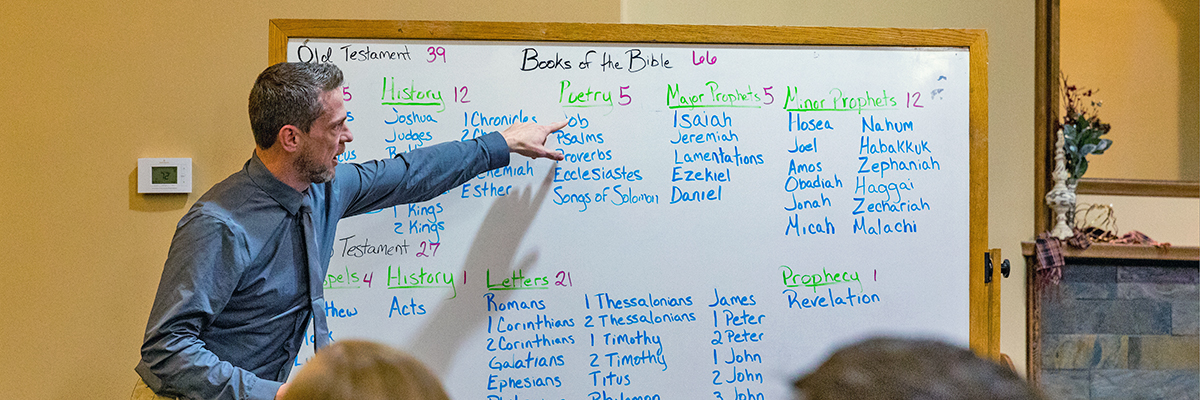 Old Testament 39
Books of the Bible 66
5
History 12
Joshua
Judges
1 Kings
2 Kings
1 Chronicles
Esther
Poetry 5
Psalms
Proverbs
Ecclesiastes
Songs of Solomon
Major Prophets 5
Isaiah
Jeremiah
Lamentations
Ezekiel
Daniel
Minor Prophets 12
Hosea
Joel
Amos
Obadiah
Jonah
Micah
Nahum
Habakkuk
Zephaniah
Haggai
Zechariah
Malachi
Testament 27
4
History 1
Acts
Letters 21
Romans
1 Corinthians
2 Corinthians
Galatians
Ephesians
1 Thessalonians
2 Thessalonians
1 Timothy
2 Timothy
Titus
Philemon
James
1 Peter
2 Peter
1 John
2 John
3 John
Prophecy 1
Revelation
72